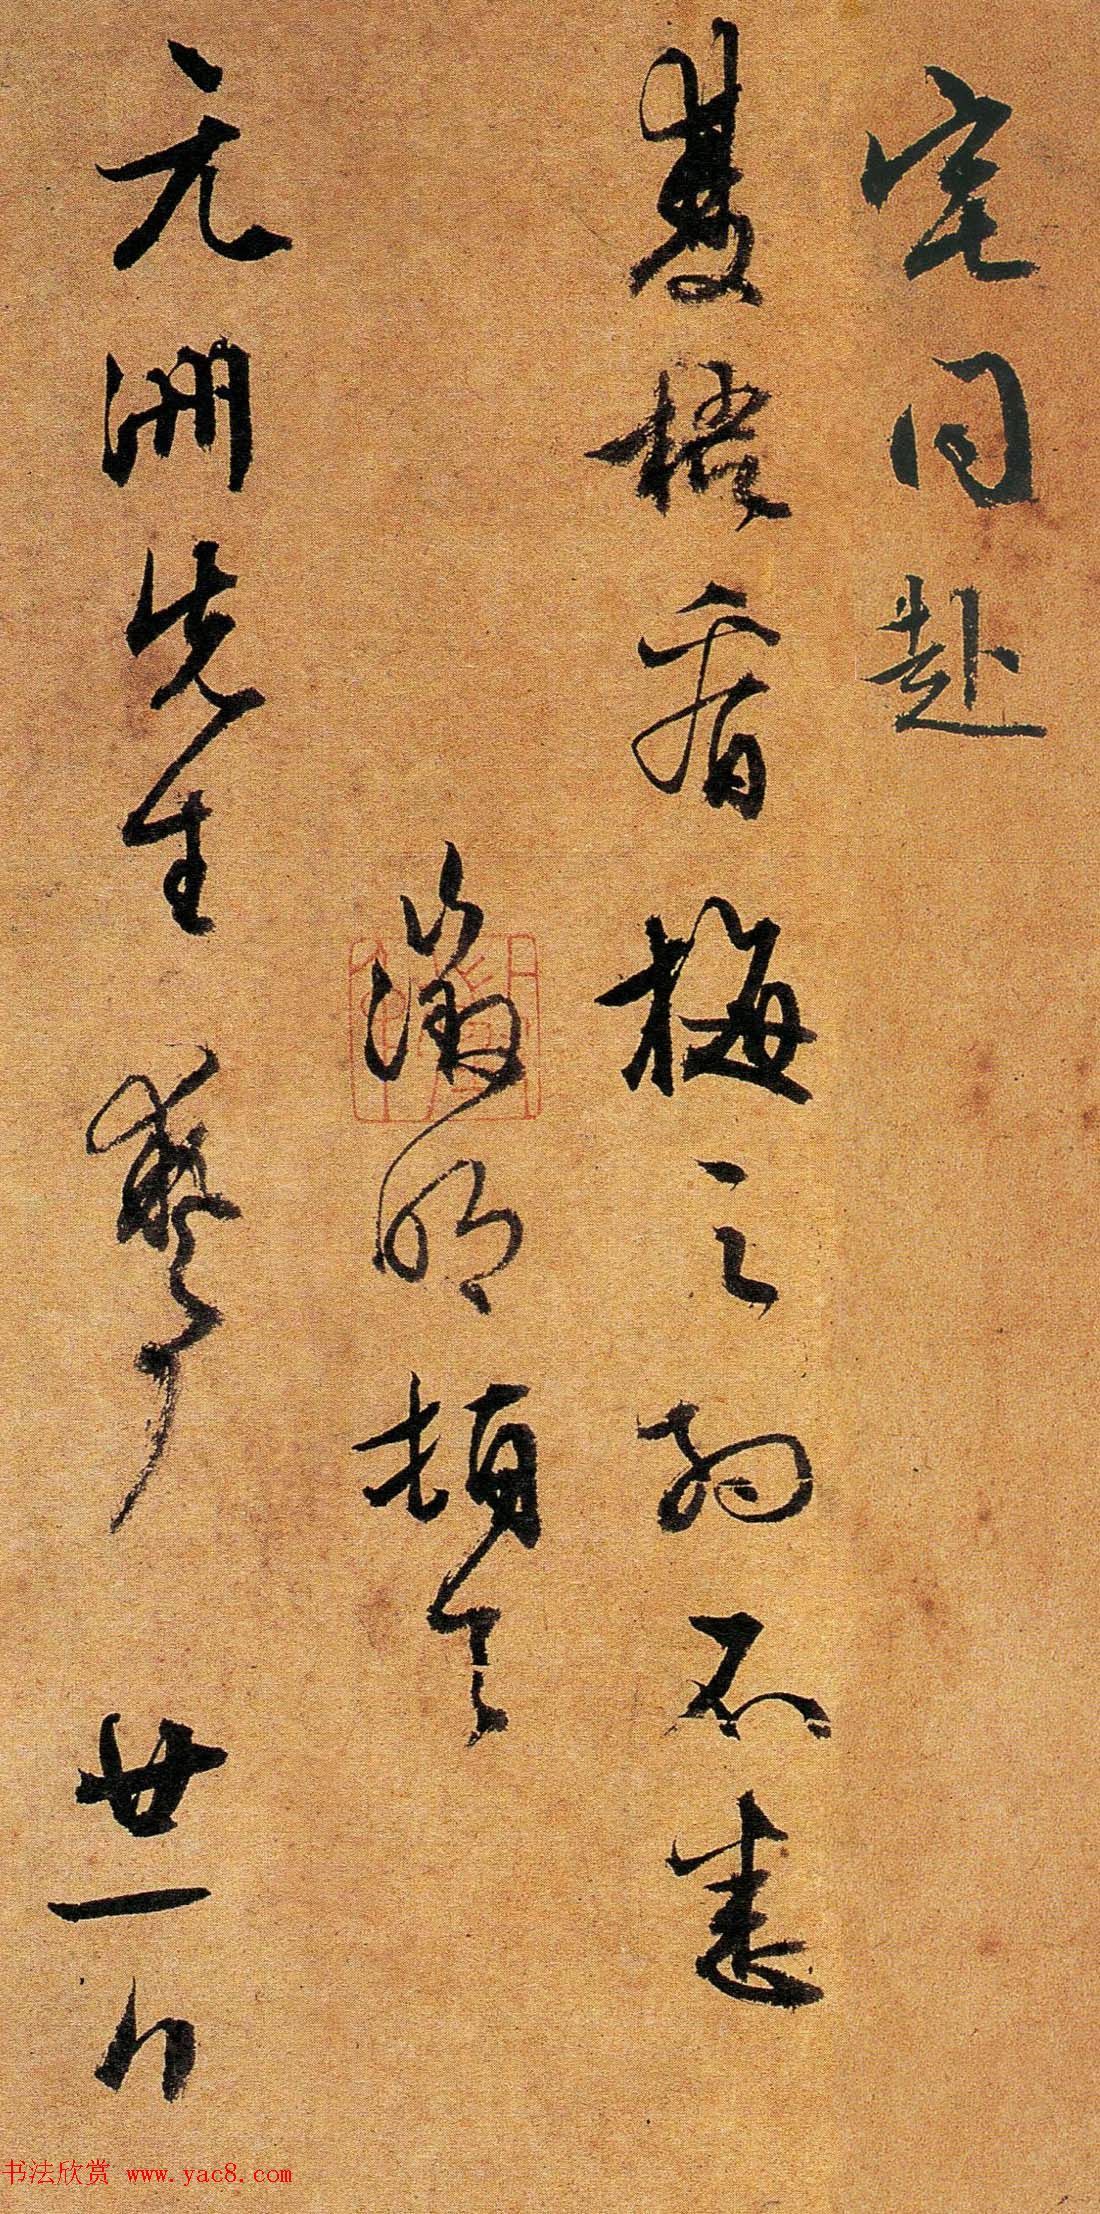 宅同赴
雙梧看梅之約不悉
徵明頓首
元洲先生 廿一日
书法欣赏 www.yac8.com